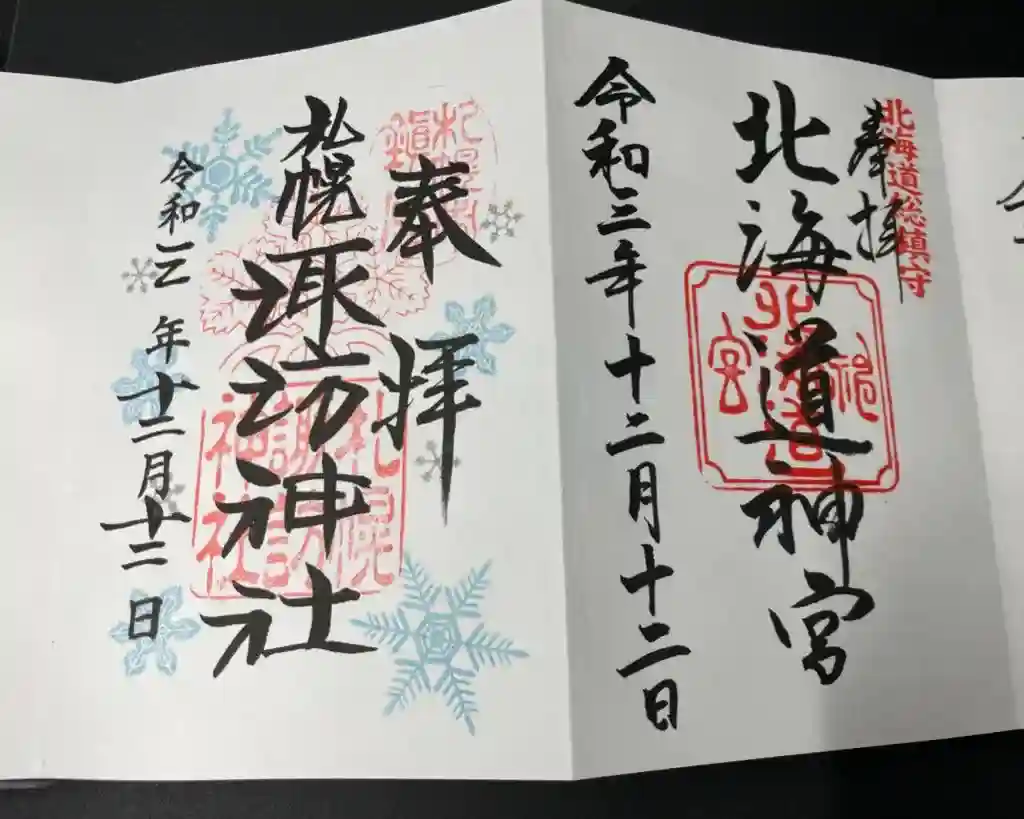 北海道総鎮守
奉拝
北海道神宮
令和三年十二月十二日
奉拝
札幌諏訪神社
札幌諏訪神社
令和三年十二月十二日